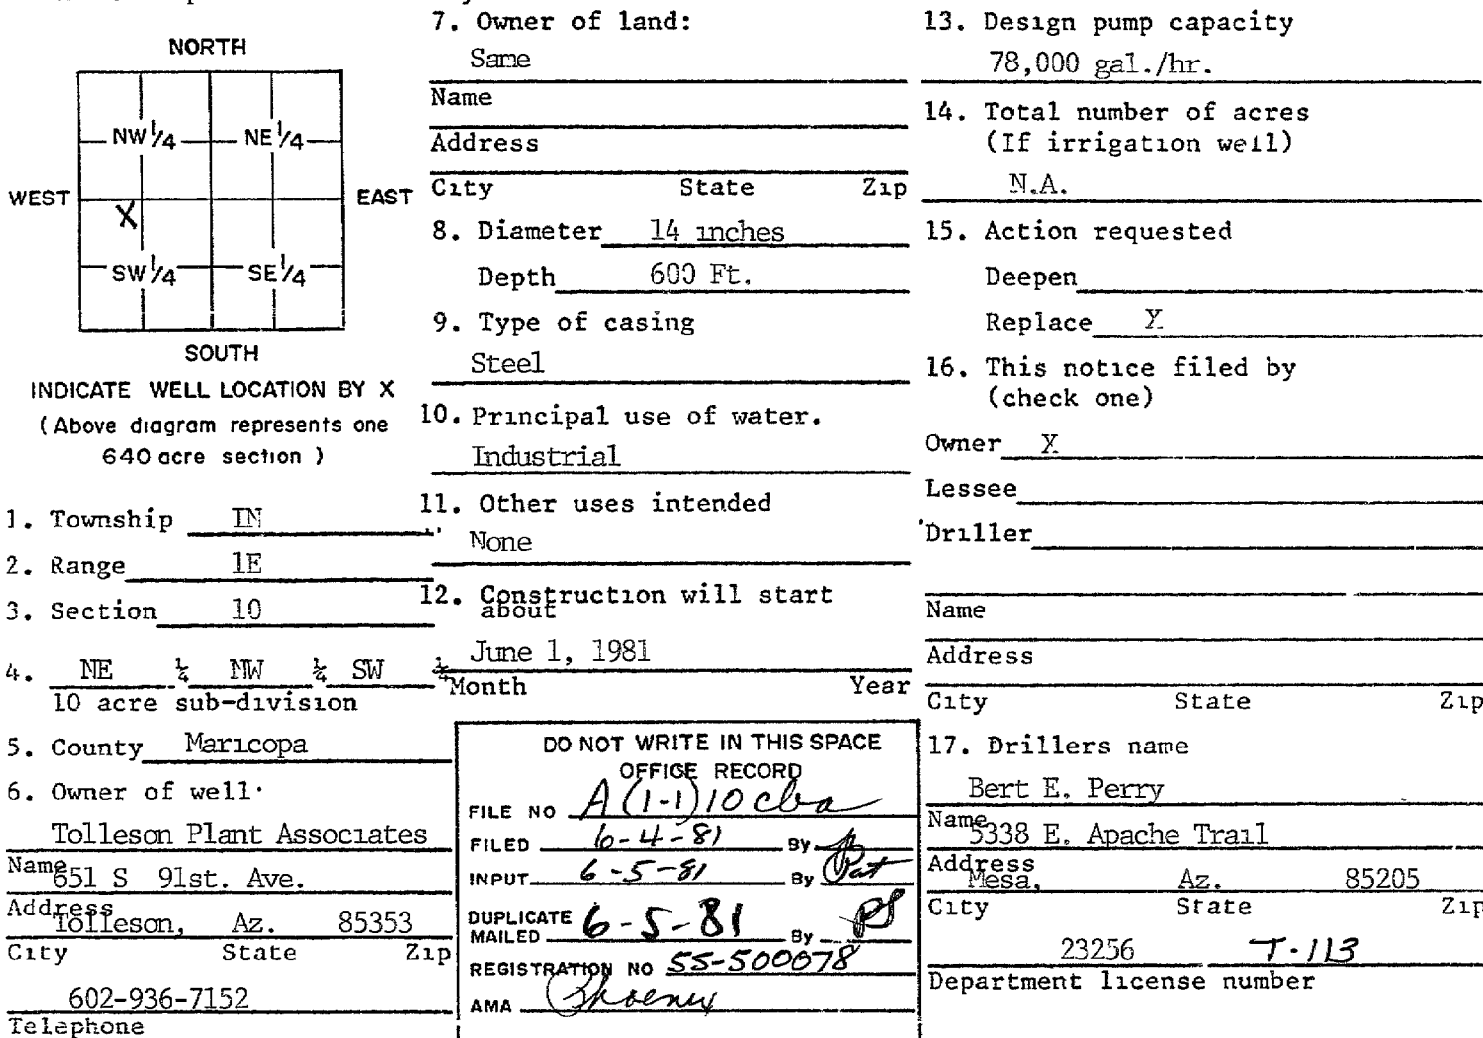 NORTH
NW 1/4 NE 1/4
WEST EAST
X
SW 1/4 SE 1/4
SOUTH
INDICATE WELL LOCATION BY X
(Above diagram represents one
640 acre section)
1. Township 1N
2. Range 1E
3. Section 10
4. NE ¼ NW ¼ SW ¼
10 acre sub-division
5. County Maricopa
6. Owner of well.
Tolleson Plant Associates
Name
651 S 91st. Ave.
Address
Tolleson, Az. 85353
City State Zip
602-936-7152
Telephone
7. Owner of land:
Same
Name
Address
City State Zip
8. Diameter 14 inches
Depth 600 Ft.
9. Type of casing
Steel
10. Principal use of water.
Industrial
11. Other uses intended
None
12. Construction will start
about
June 1, 1981
Month Year
DO NOT WRITE IN THIS SPACE
OFFICE RECORD
FILE NO A(1-1)10cba
FILED 6-4-81 By
INPUT 6-5-81 By Pat
DUPLICATE
MAILED 6-5-81 By PS
REGISTRATION NO 55-500078
AMA Phoenix
13. Design pump capacity
78,000 gal./hr.
14. Total number of acres
(If irrigation well)
N.A.
15. Action requested
Deepen
Replace X
16. This notice filed by
(check one)
Owner X
Lessee
Driller
Name
Address
City State Zip
17. Drillers name
Bert E. Perry
Name
5338 E. Apache Trail
Address
Mesa, Az. 85205
City State Zip
23256 T-113
Department license number